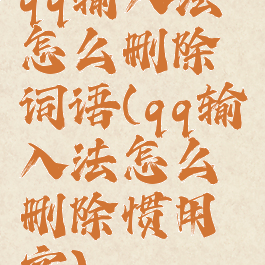 qq输入法
怎么删除
词语(qq输
入法怎么
删除惯用